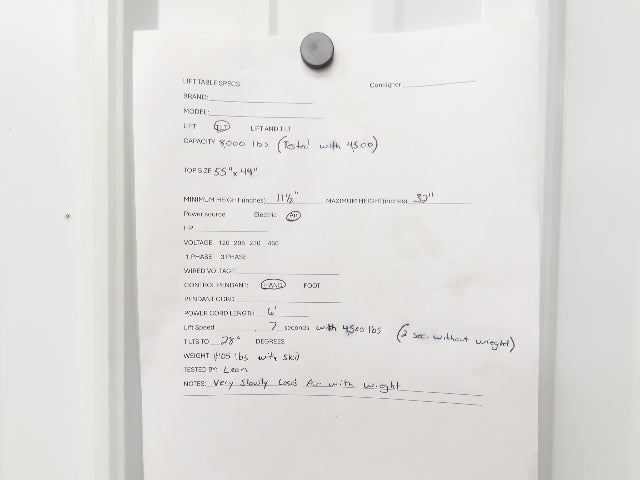 LIFT TABLE SPECS Consigner
BRAND:
MODEL:
LIFT TILT LIFT AND TILT
CAPACITY 8,000 lbs (Tested with 4,500)
TOP SIZE 55" x 49"
MINIMUM HEIGHT (inches) 11 1/2" MAXIMUM HEIGHT (inches) 32"
Power source Electric Air
HP
VOLTAGE 120 208 230 460
1 PHASE 3 PHASE
WIRED VOLTAGE
CONTROL PENDANT: HAND FOOT
PENDANT CORD
POWER CORD LENGTH 6'
Lift Speed 7 seconds with 4,500 lbs (2 sec. without wieght)
TILTS TO 28° DEGREES
WEIGHT lbs with skid
TESTED BY: Leon
NOTES: Very Slowly Loses Air with wieght